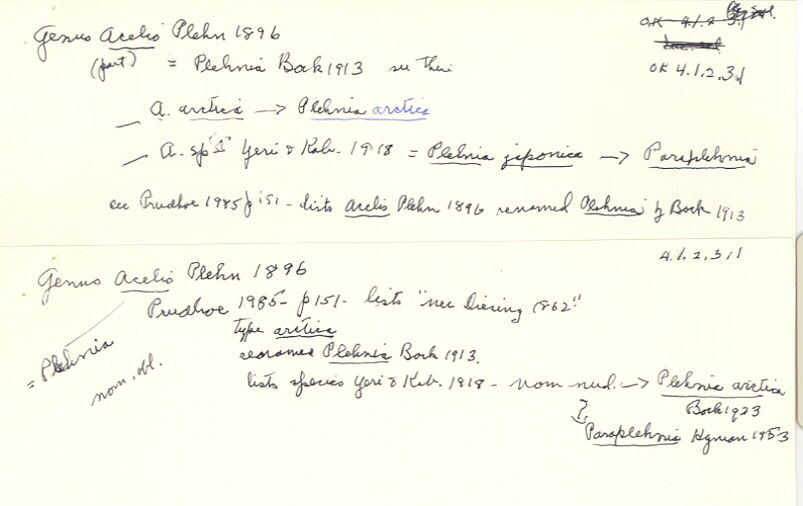 Genus Acelis Plehn 1896
OK 4.1.2 3.1
(part) = Plehnia Bock 1913 see this
OK 4.1.2.3.1
A. arctica → Plehnia arctica
A. sp "I" Yeri & Kab. 1918 = Plehnia japonica → Paraplehnia
see Prudhoe 1985 p 151 - lists Acelis Plehn 1896 renamed Plehnia by Bock 1913
4.1.2.3.1
Genus Acelis Plehn 1896
Prudhoe 1985 - p 151 - lists "nec Diesing 1862"
type arctica
= Plehnia
renamed Plehnia Bock 1913.
nom. obl.
lists species Yeri & Kab. 1918 - nom nud. → Plehnia arctica
Bock 1923
?
Paraplehnia Hyman 1953